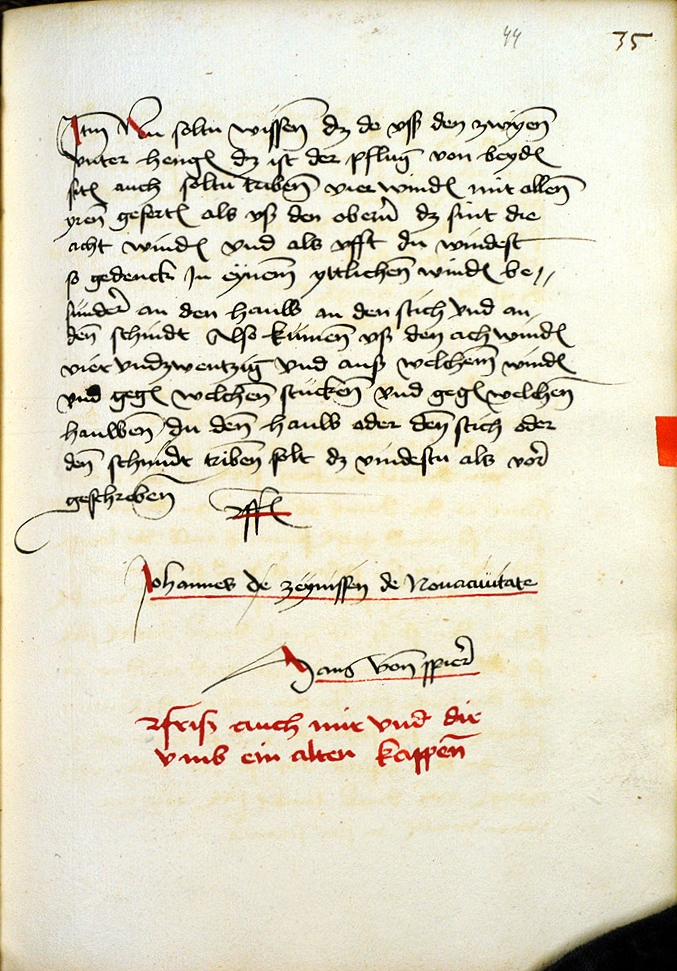 44 35
Itm Nu soltu wissen dz du vß den zwyen
vnter hengē dz ist der pflug von beydē
sitē auch soltu triben vier windē mit allen
yren gefertē als vß den obern dz sint die
acht windē vnd als offt du windest
so gedenck In eynem yttlichen windē be//
sunder an den hauw an den stich vnd an
den schnidt Also kumen vß den ach windē
vier vndzwentzig vnd auß welchem windē
vnd gegē welchen stucken vnd gegē welchen
hauwen du den hauw oder den stich oder
den schnidt triben solt dz vindestu als vor
geschreben
Johannes de zeynissen de Nouaciuitate
Hans von speier
vmb ein alten kappen